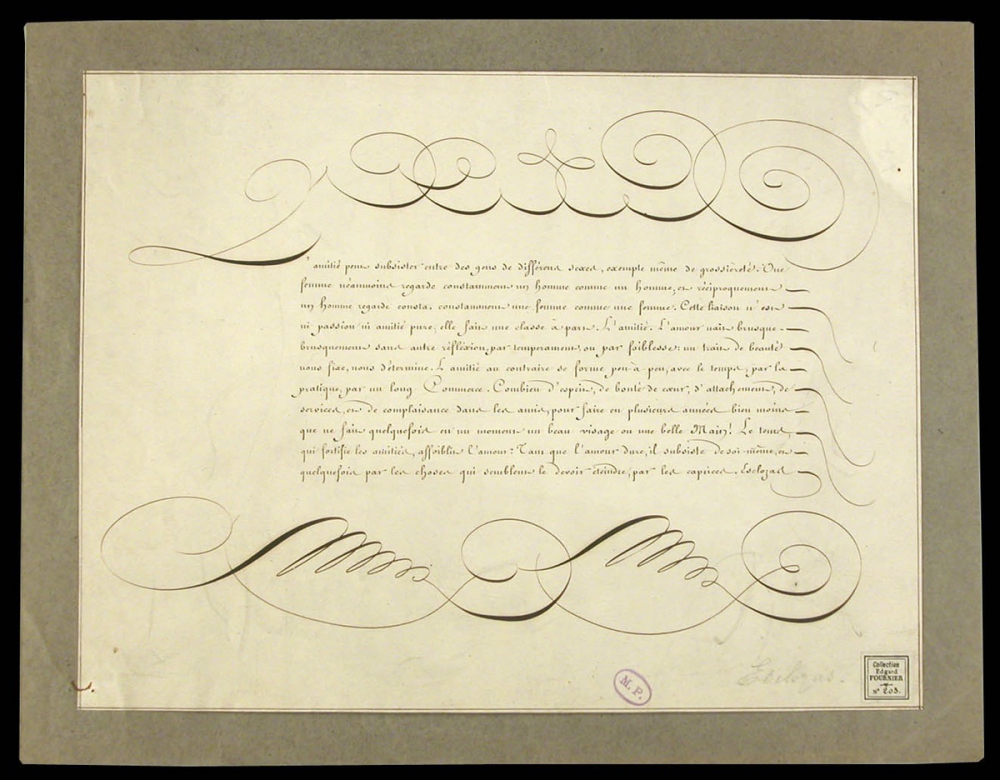 L'amitié peut subsister entre des gens de différens sexes, exempte même de grossièreté. Une
femme neanmoins regarde constamment un homme comme un homme, et réciproquement
un homme regarde consta. constamment une femme comme une femme. Cette liaison n'est
ni passion ni amitié pure, elle fait une classe à part. L'amitié. L'amour naît brusque-
brusquement sans autre réfléxion, par temperament, ou par foiblesse: un trait de beauté
nous fixe, nous détermine. L'amitié au contraire se forme peu-à-peu, avec le temps, par la
pratique, par un long Commerce. Combien d'esprit, de bonté de cœur, d'attachement, de
services, et de complaisance dans les amis, pour faire en plusieurs années bien moins
que ne fait quelquefois en un moment un beau visage ou une belle Main! Le tems,
qui fortifie les amitiés, affoiblit l'amour: Tant que l'amour dure, il subsiste de soi-même, et
quelquefois par les choses qui semblent le devoir éteindre, par les caprices. Esclozas
M.P.
Esclozas.
Collection
Edgard
FOURNIER
N° 203.